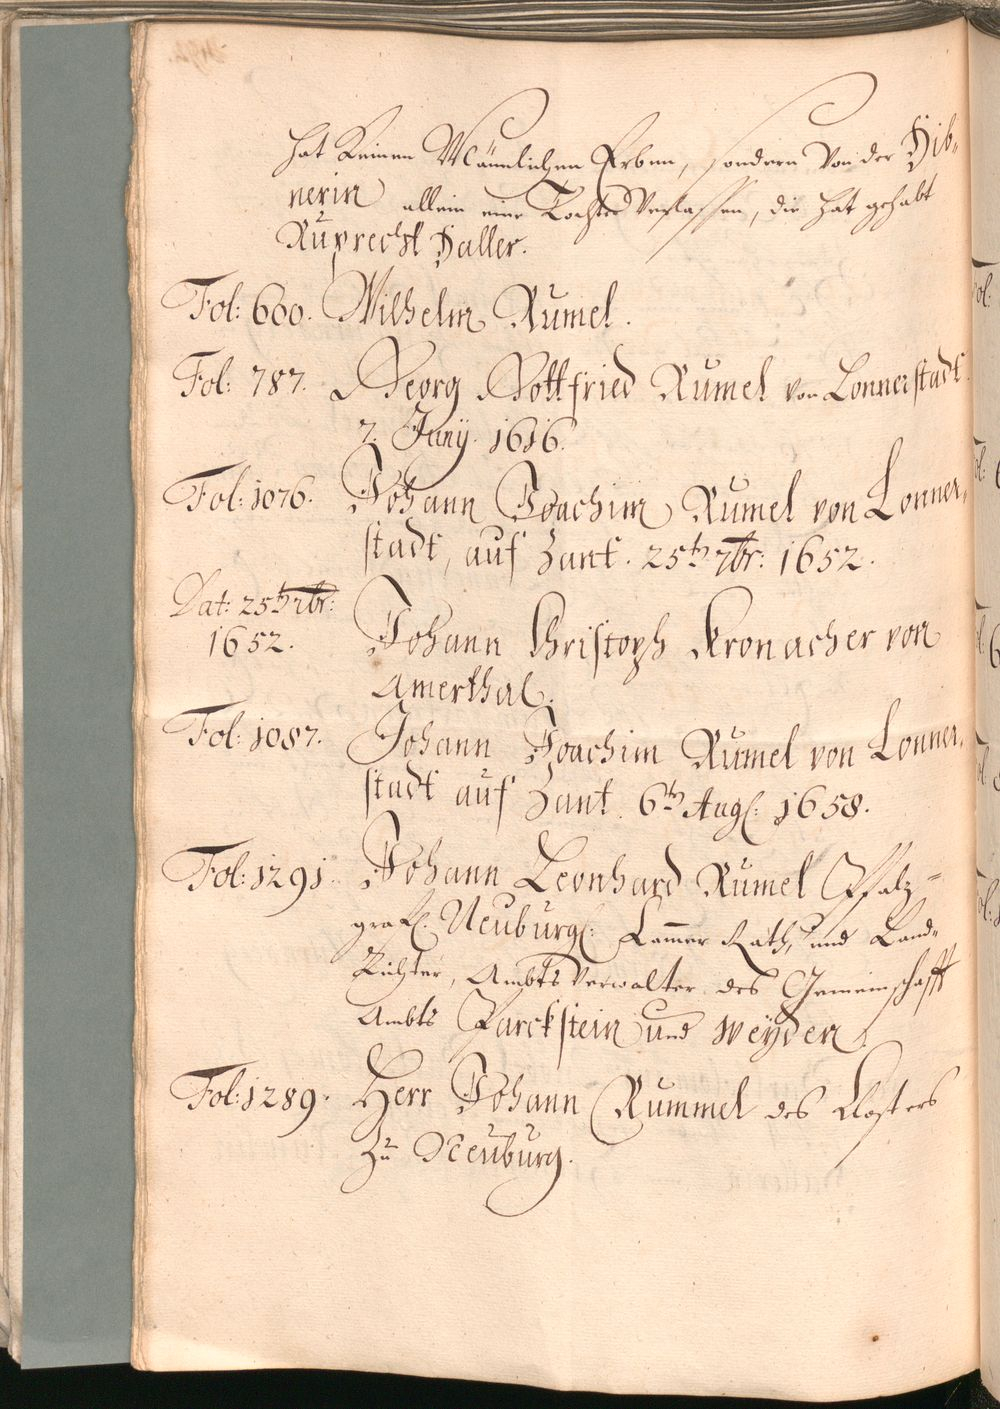 hat Keinen Männlichen Erben, sondern Von der Hib-
nerin allein eine Tochter Verlassen, die hat gehabt
Ruprecht Haller.
Fol: 600. Wilhelm Rumel.
Fol: 787. Georg Gottfried Rumel von Lonnerstadt.
7. Junÿ. 1616.
Fol: 1076. Johann Joachim Rumel von Lonner-
stadt, auf Zant. 25tn 7br: 1652.
Dat: 25tn 7br:
1652. Johann Christoph Kronacher von
Amerthal.
Fol: 1087. Johann Joachim Rumel von Lonner-
stadt auf Zant. 6tn Aug: 1658.
Fol: 1291. Johann Leonhard Rumel Pfalz-
graf: Neuburg: Cammer Rath, und Land-
Richter, Ambts Verwalter des Gemeinschafft
Ambts Parckstein und Weÿden.
Fol: 1289. Herr Johann Rummel des Closters
zu Neuburg.